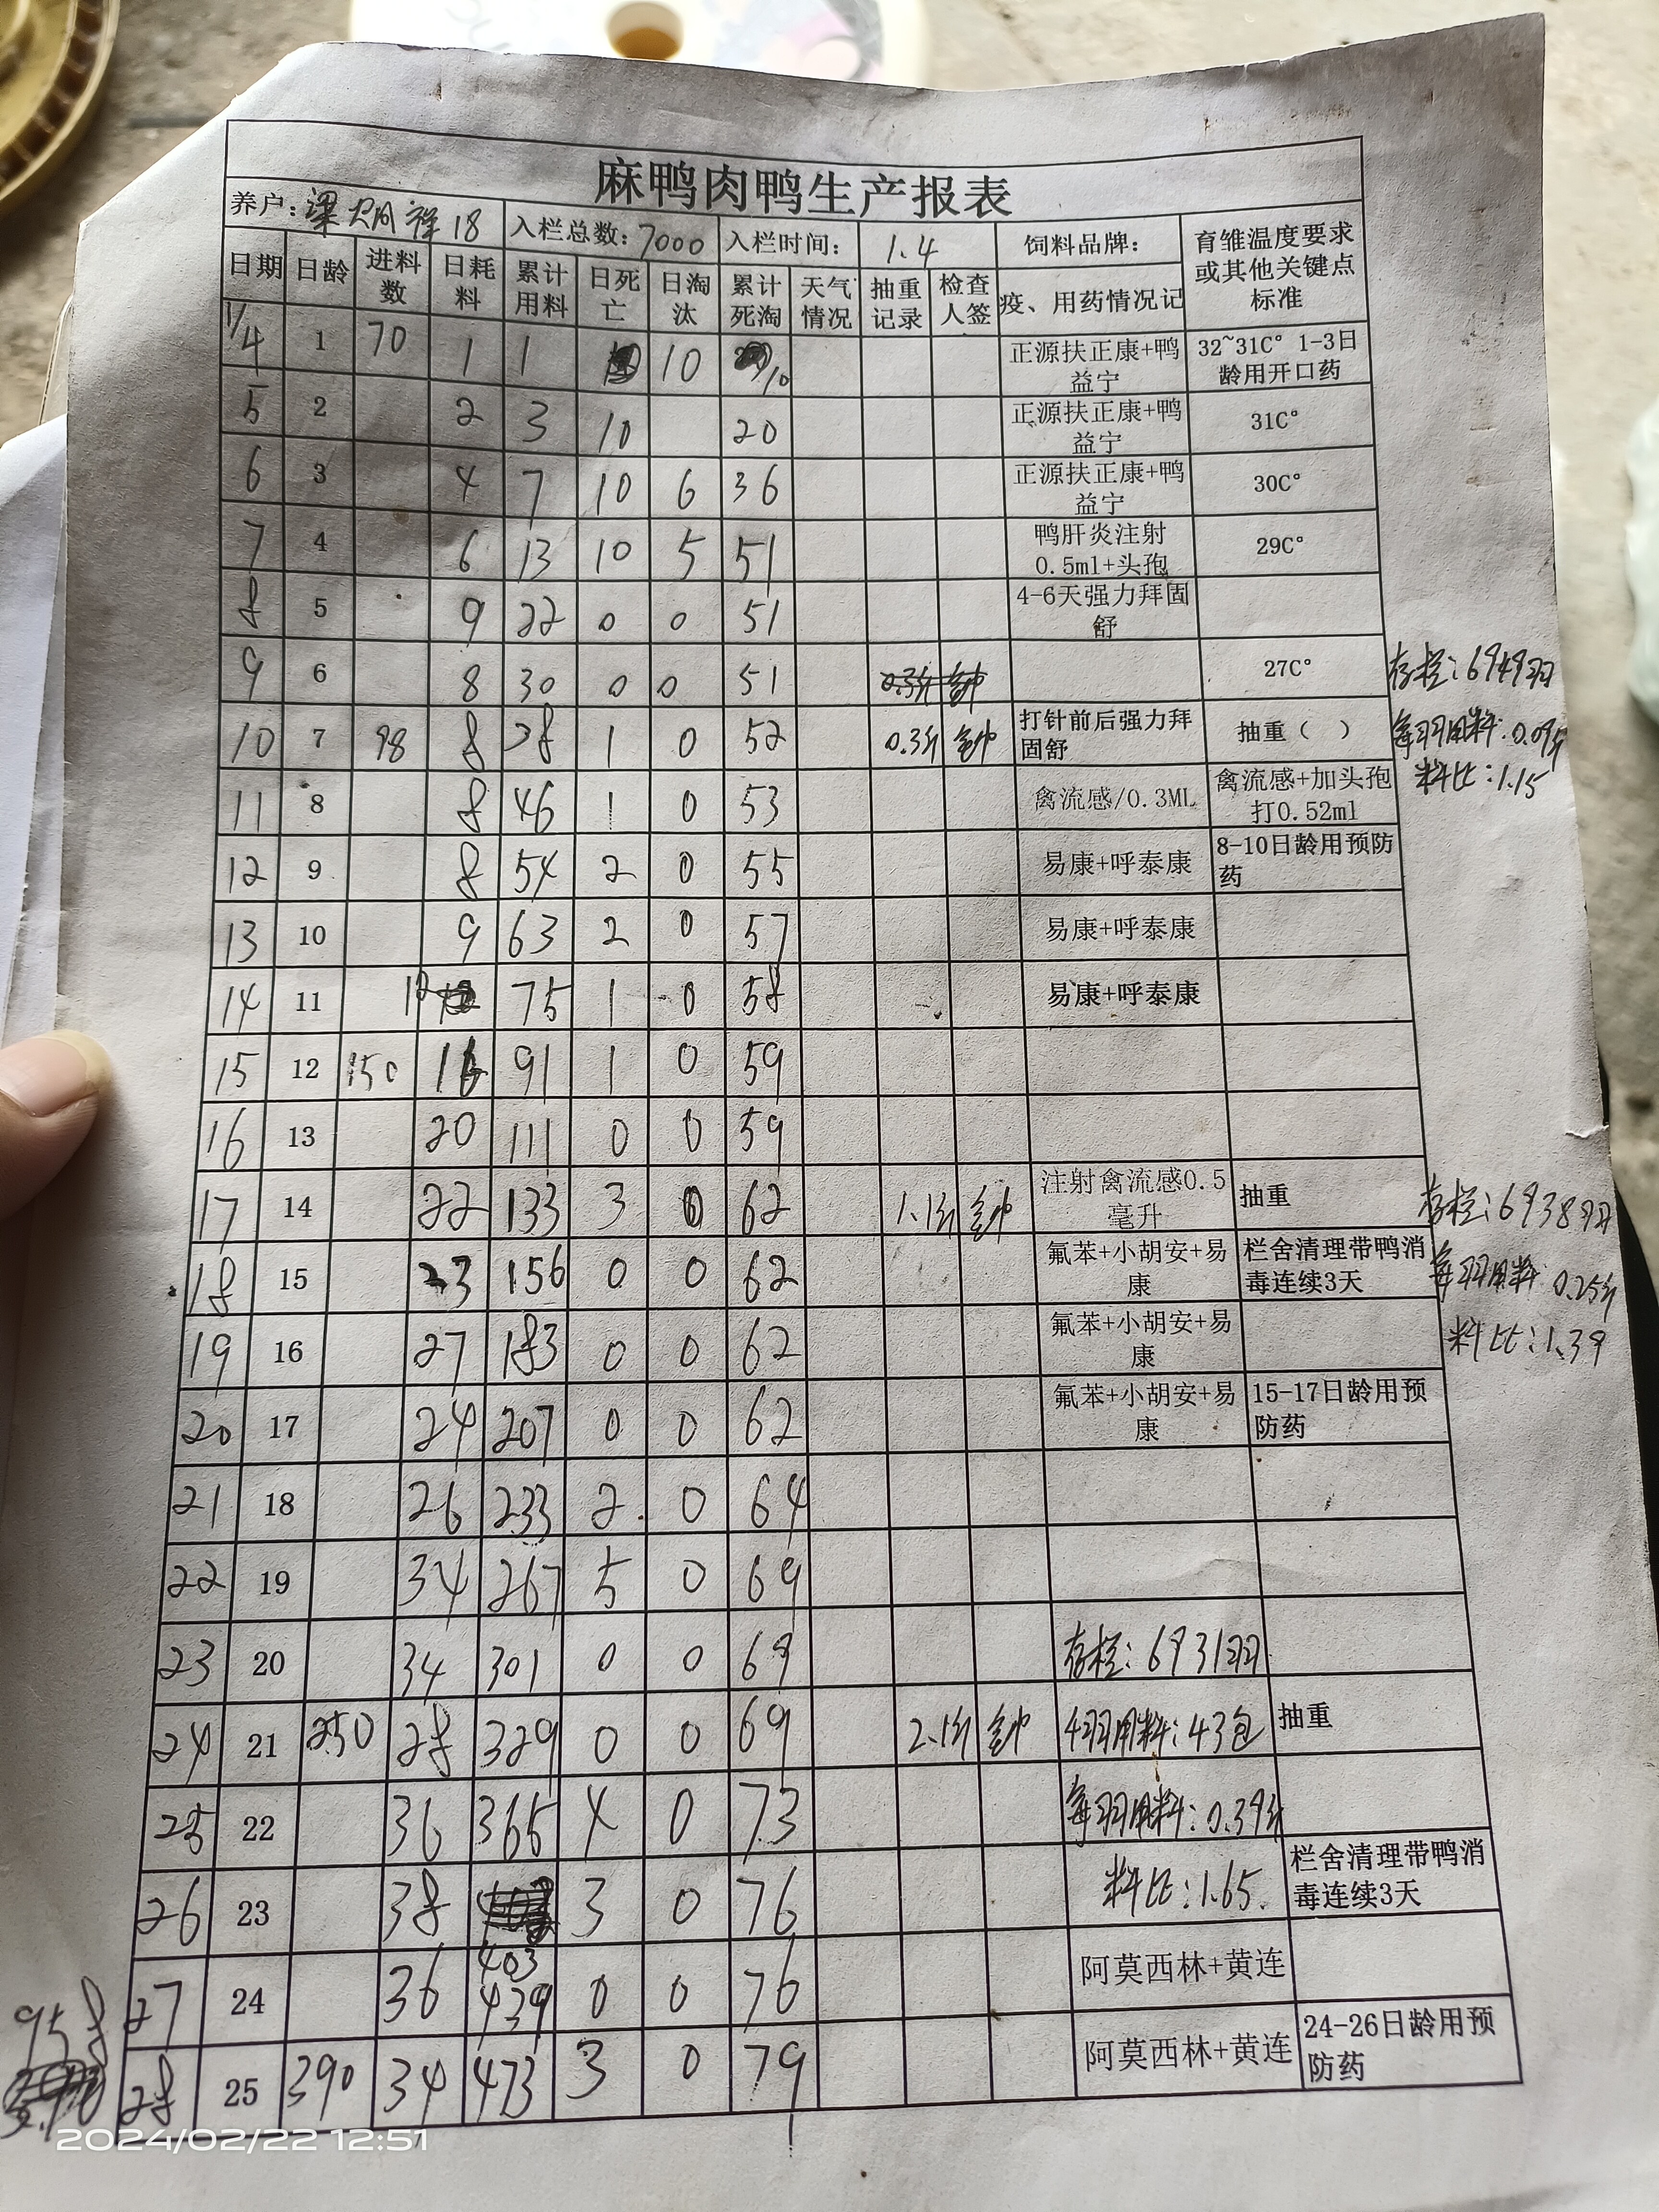 麻鸭肉鸭生产报表
养户：梁炳祥18 入栏总数：7000 入栏时间： 1.4 饲料品牌： 育雏温度要求或其他关键点标准
日期 日龄 进料数 日耗料 累计用料 日死亡 日淘汰 累计死淘 天气情况 抽重记录 检查人签 疫、用药情况记
1/4 1 70 1 1 10 10 正源扶正康+鸭益宁 32~31C° 1-3日龄用开口药
5 2 2 3 10 20 正源扶正康+鸭益宁 31C°
6 3 4 7 10 6 36 正源扶正康+鸭益宁 30C°
7 4 6 13 10 5 51 鸭肝炎注射0.5ml+头孢 29C°
8 5 9 22 0 0 51 4-6天强力拜固舒
9 6 8 30 0 0 51 27C° 存栏：6949羽
10 7 98 8 38 1 0 52 0.3斤 打针前后强力拜固舒 抽重（ ） 每羽用料：0.09斤
11 8 8 46 1 0 53 禽流感/0.3ML 禽流感+加头孢打0.52ml 料比：1.15
12 9 8 54 2 0 55 易康+呼泰康 8-10日龄用预防药
13 10 9 63 2 0 57 易康+呼泰康
14 11 12 75 1 0 58 易康+呼泰康
15 12 150 16 91 1 0 59
16 13 20 111 0 0 59
17 14 22 133 3 0 62 1.1斤 注射禽流感0.5毫升 抽重 存栏：6938羽
18 15 23 156 0 0 62 氟苯+小胡安+易康 栏舍清理带鸭消毒连续3天 每羽用料：0.25斤
19 16 27 183 0 0 62 氟苯+小胡安+易康 料比：1.39
20 17 24 207 0 0 62 氟苯+小胡安+易康 15-17日龄用预防药
21 18 26 233 2 0 64
22 19 34 267 5 0 69
23 20 34 301 0 0 69 存栏：6931羽
24 21 250 28 329 0 0 69 2.1斤 羽用料：43包 抽重
25 22 36 365 4 0 73 每羽用料：0.39斤
26 23 38 403 3 0 76 料比：1.65 栏舍清理带鸭消毒连续3天
27 24 36 439 0 0 76 阿莫西林+黄连
958
28 25 390 34 473 3 0 79 阿莫西林+黄连 24-26日龄用预防药
2024/02/22 12:51